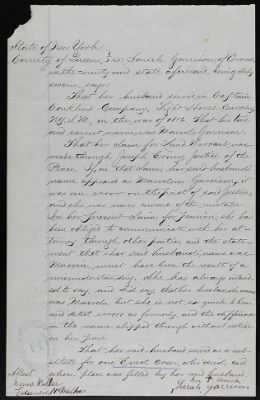 State of New York
County of Queens ss: Sarah Garrison of
in the county and state aforesaid, being duly
sworn, says:
That her husband served in Captain
Conklins Company, Light Horse
N.Y. M., in the war of 1812. That his true
and correct name was Marvel Garrison.
That her claim for Land Warrant was
made through Joseph Justice of the
Peace. If, in that claim her said husband's
name appeared as Garrison, it
was an error on the part of said justice,
and she was never aware of the mistake.
In her present claim for pension, she has
been obliged to communicate with her at-
torney through other parties and the state-
ment that her said husband's name was
Marvin, must have been the result of a
misunderstanding. She has always intend-
ed to say, and did say, that her husband's name
was Marvel but she is not so quick to hear
and detect errors as formerly, and the difference
in the name slipped through without notice
on her part.
That her said husband served as a sub-
stitute for one who died, and
whose place was filled by her said husband
Attest
her mark
Sarah Garrison